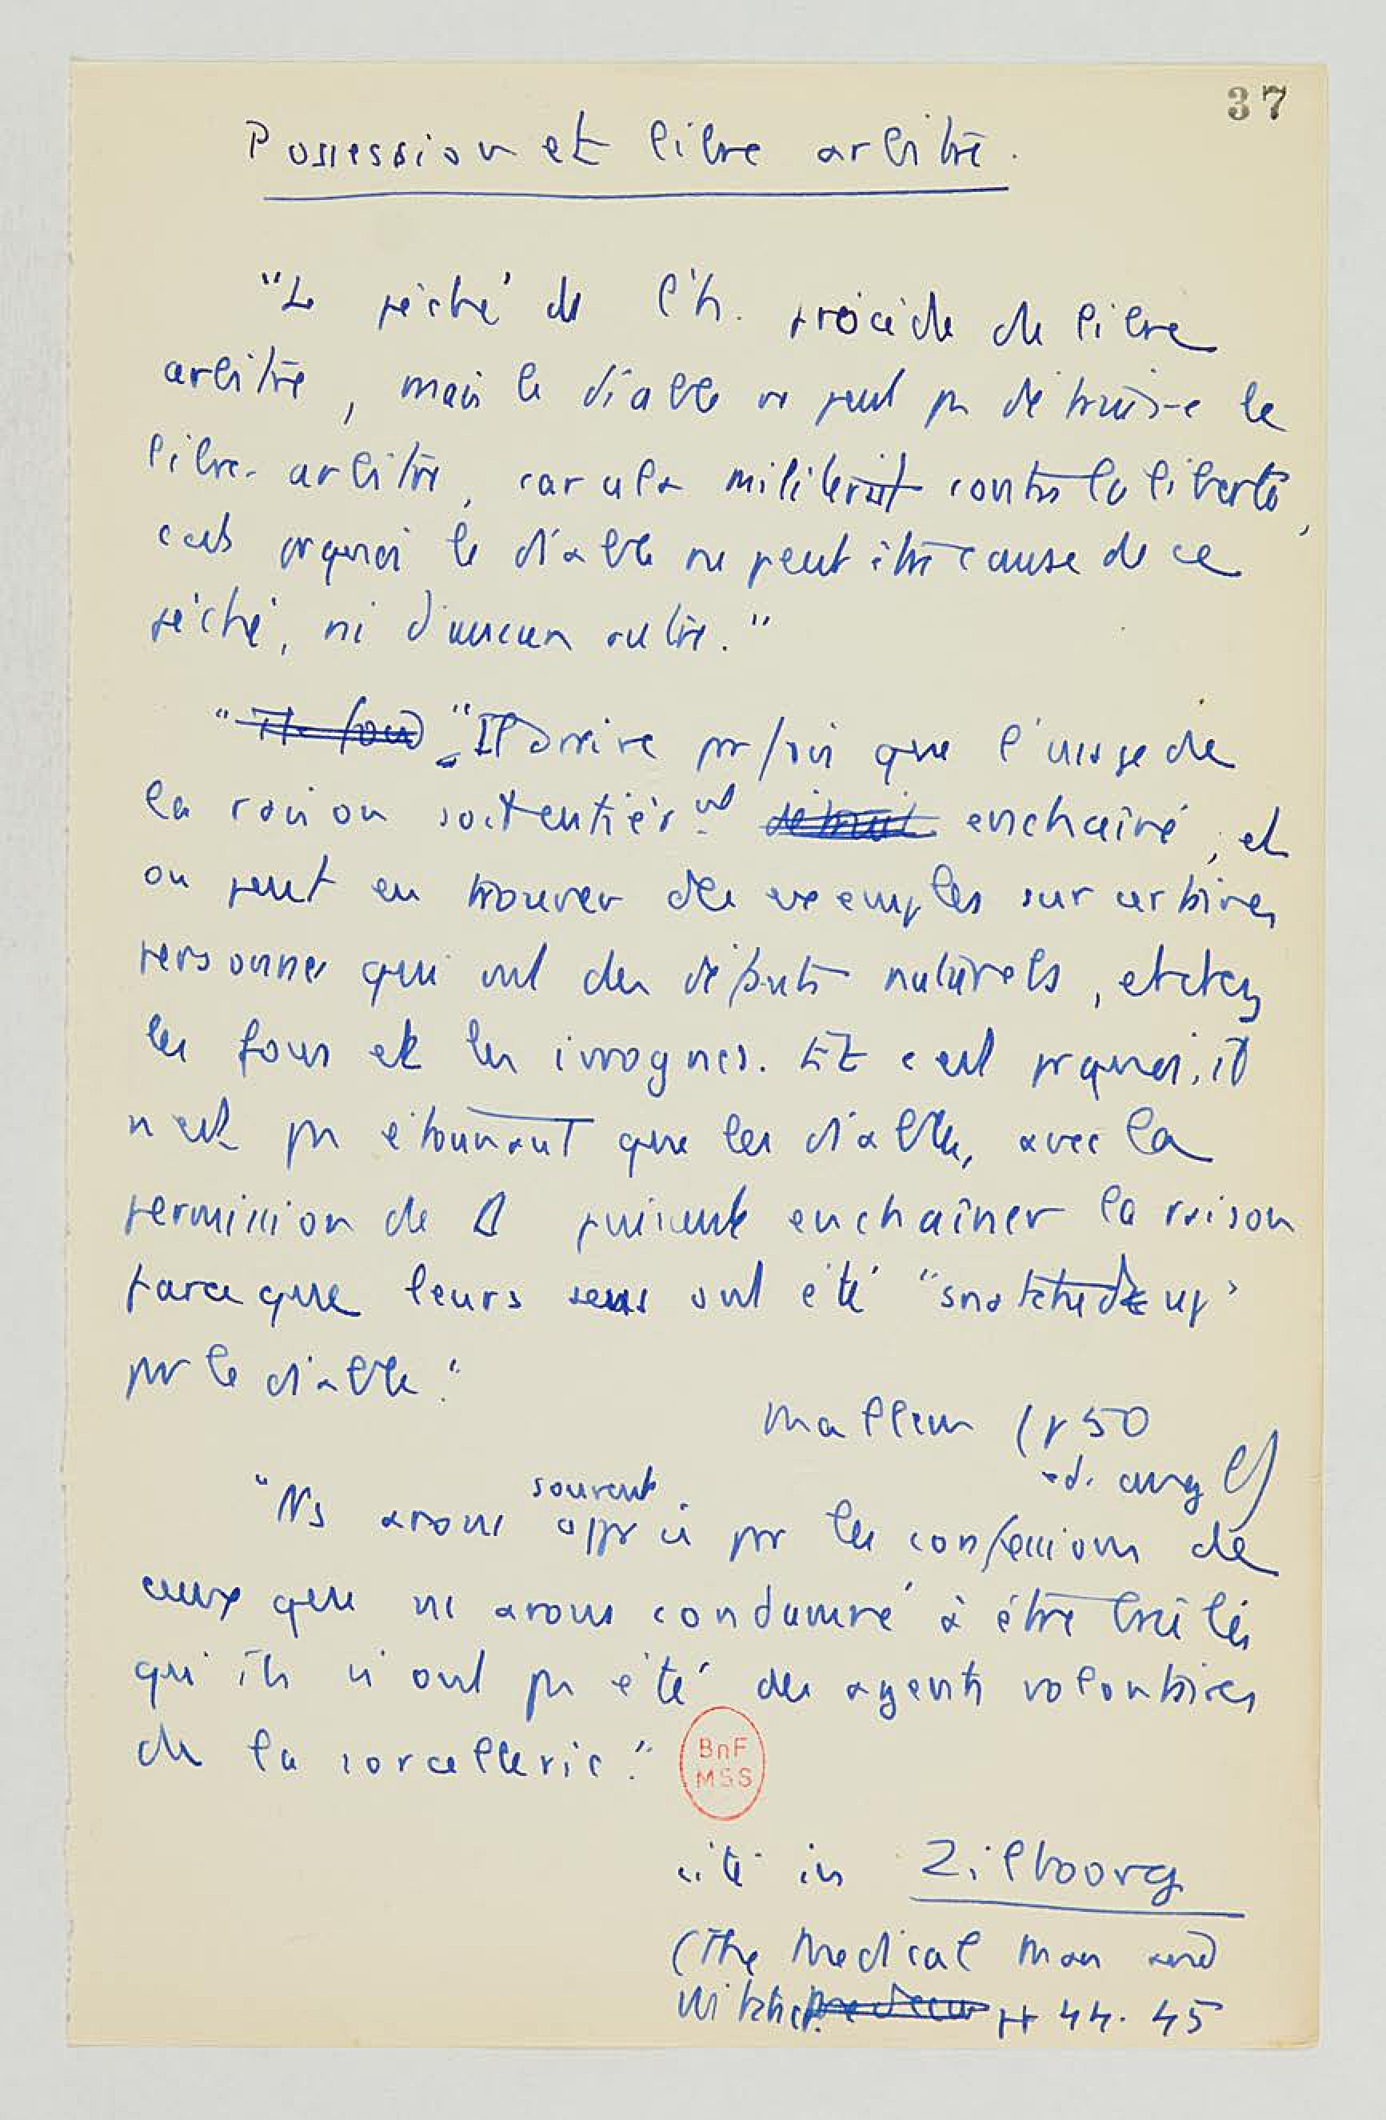 37
Possession et libre arbitre.
"Le péché de l'h. procède de libre
arbitre, mais le diable ne peut pas détruire le
libre-arbitre, car cela militerait contre la liberté,
c'est prquoi le diable ne peut être cause de ce
péché, ni d'aucun autre."
" "Il arrive parfois que l'usage de
la raison soit entièrmt enchaîné, et
on peut en trouver des exemples sur certaines
personnes qui ont des défauts naturels, et chez
les fous et les ivrognes. Et c'est prquoi, il
n'est pas étonnant que les diables, avec la
permission de D puissent enchaîner la raison
parce que leurs sens ont été "snatched up"
par le diable."
Malleus (p 50
ed. angl)
souvent
"Ns avons appris par les confessions de
ceux que ns avons condamné à être brûlés
qu'ils n'ont pas été des agents volontaires
de la sorcellerie."
BnF
MSS
cité in Zilboorg
(The Medical Man and
Witch. pp 44. 45